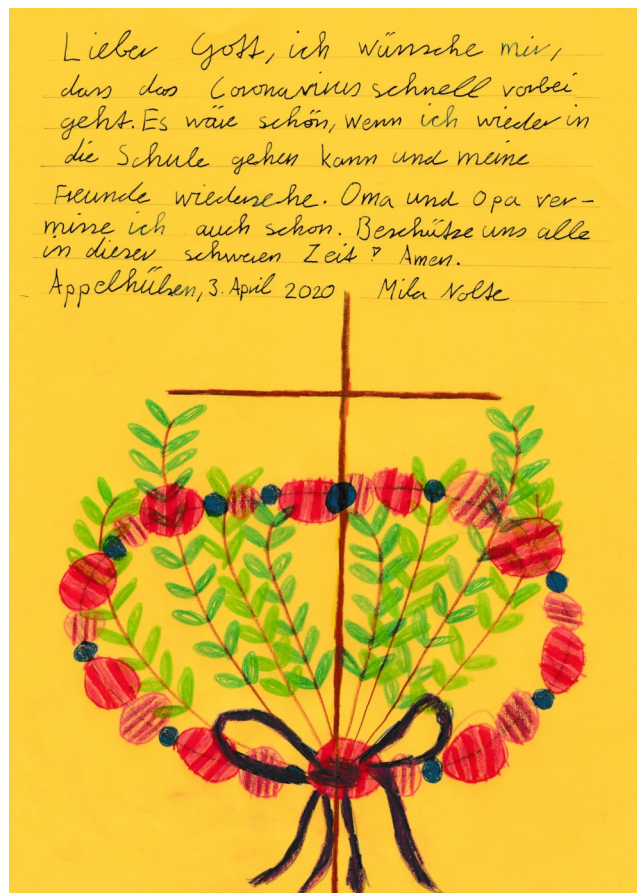 Lieber Gott, ich wünsche mir,
dass das Coronavirus schnell vorbei
geht. Es wäre schön, wenn ich wieder in
die Schule gehen kann und meine
Freunde wiedersehe. Oma und Opa ver-
misse ich auch schon. Beschütze uns alle
in dieser schweren Zeit! Amen.
Appelhülsen, 3. April 2020 Mila Nolte